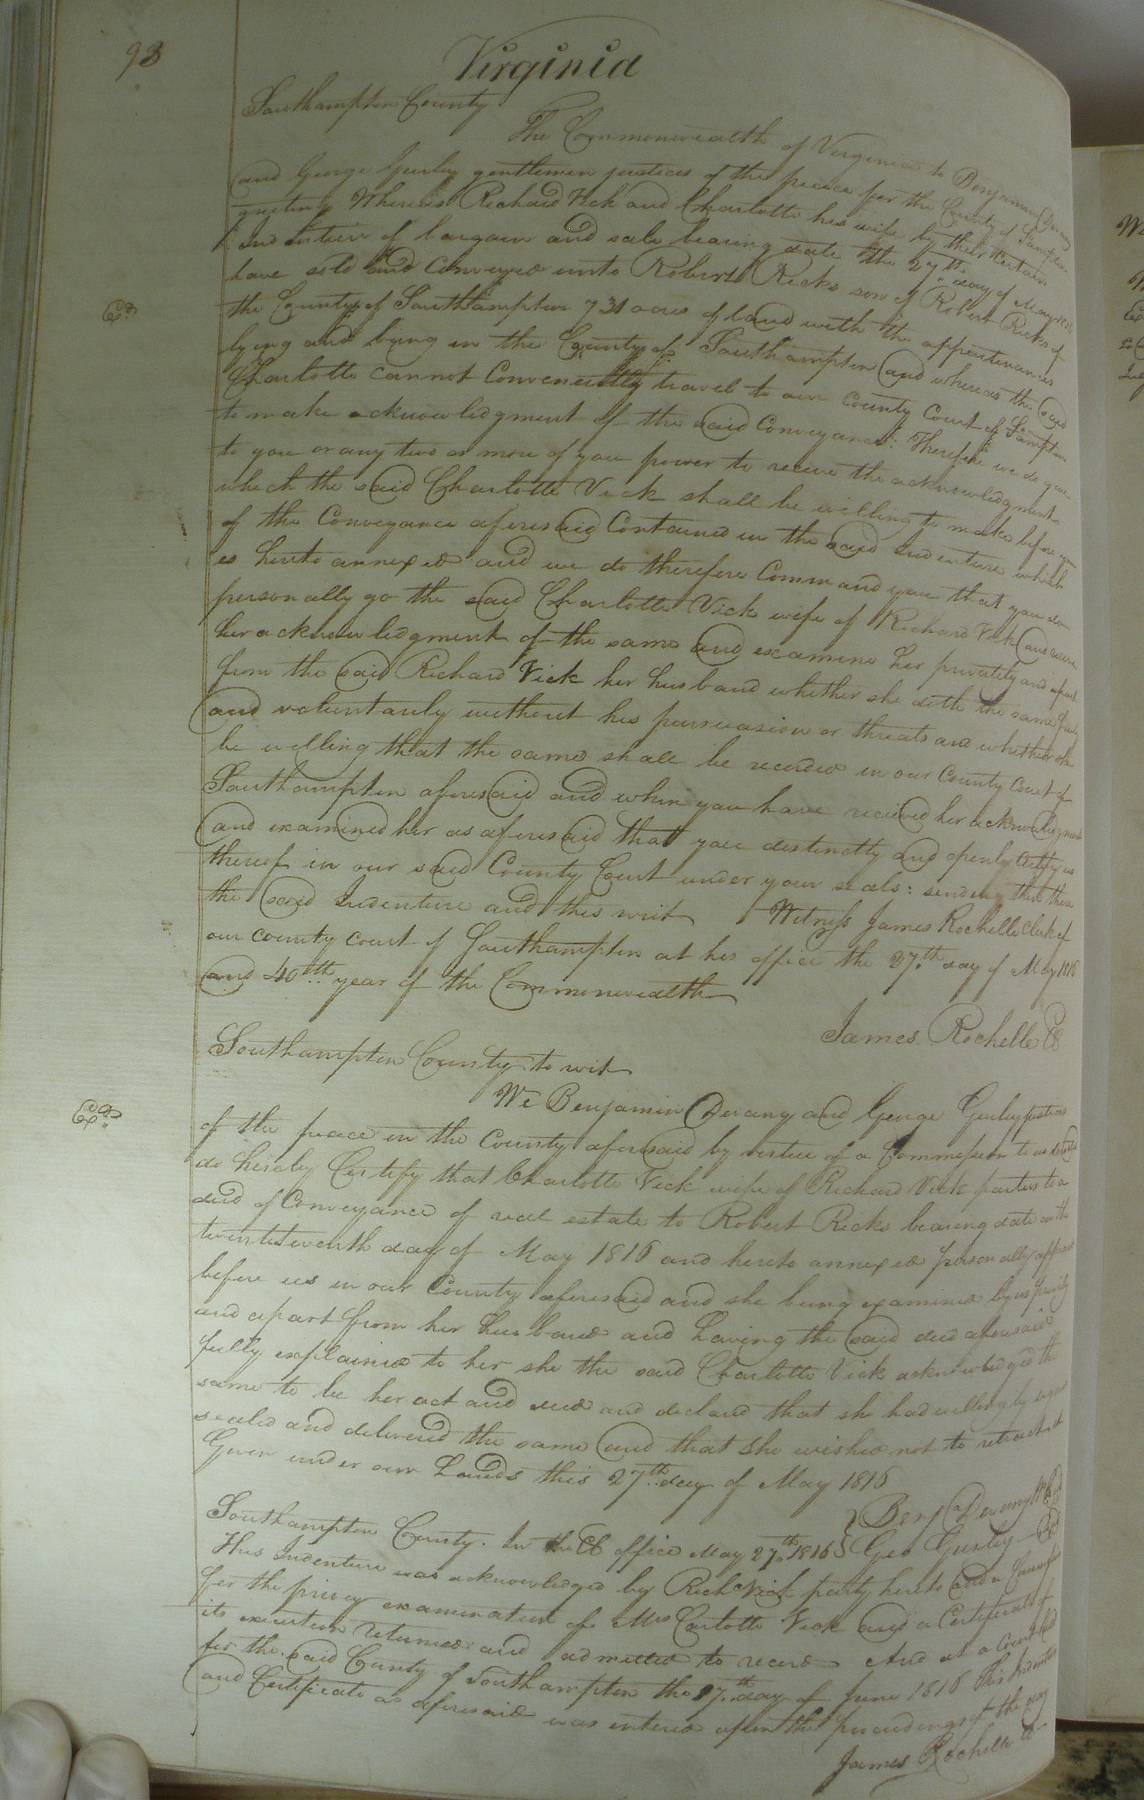 98
Virginia
Southampton County
The Commonwealth of Virginia to Benjamin Devany
and George Gurley gentlemen justices of the peace for the County of Sampton
greeting Whereas Richard Vick and Charlotte his wife by their Certain
Indenture of bargain and sale bearing date the 27th day of May 1816
have sold and Conveyed unto Robert Ricks son of Robert Ricks of
the County of Southampton 731 acres of land with the appurtenances
lying and being in the County of Southampton and whereas the said
Charlotte cannot Conveniently travel to our County Court of Sampton
to make acknowledgment of the said Conveyance: Therefore we do give
to you or any two or more of you power to receive the acknowledgment
which the said Charlotte Vick shall be willing to make before you
of the Conveyance aforesaid Contained in the said Indenture which
is hereto annexed and we do therefore Command you that you do
personally go the said Charlotte Vick wife of Richard Vick and receive
her acknowledgment of the same and examine her privately and apart
from the said Richard Vick her husband whether she doth the same freely
and voluntarily without his persuasion or threats and whether she
be willing that the same shall be recorded in our County Court of
Southampton aforesaid and when you have received her acknowledgment
and examined her as aforesaid that you distinctly and openly certify us
thereof in our said County Court under your seals: sending then there
the said Indenture and this writ Witness James Rochelle Clerk of
our county court of Southampton at his office the 27th day of May 1816
and 40th year of the Commonwealth
James Rochelle
Southampton County to wit
We Benjamin Devany and George Gurley justices
of the peace in the County aforesaid by virtue of a Commission to us directed
do hereby Certify that Charlotte Vick wife of Richard Vick parties to a
deed of Conveyance of real estate to Robert Ricks bearing date on the
twenty seventh day of May 1816 and hereto annexed personally appeared
before us in our County aforesaid and she being examined by us privily
and apart from her husband and having the said deed aforesaid
fully explained to her she the said Charlotte Vick acknowledged the
same to be her act and deed and declared that she had willingly signed
sealed and delivered the same and that she wished not to retract it
Given under our hands this 27th day of May 1816
Benj Devany
Southampton County. In the office May 27th 1816 Geo Gurley
This Indenture was acknowledged by Richd Vick party hereto and a
for the privy examination of Mrs Carlotte Vick and a Certificate of
its execution returned and admitted to record And at a Court held
for the said County of Southampton the 17th day of June 1816 This Indenture
and Certificate as aforesaid was entered upon the proceedings of the day
James Rochelle